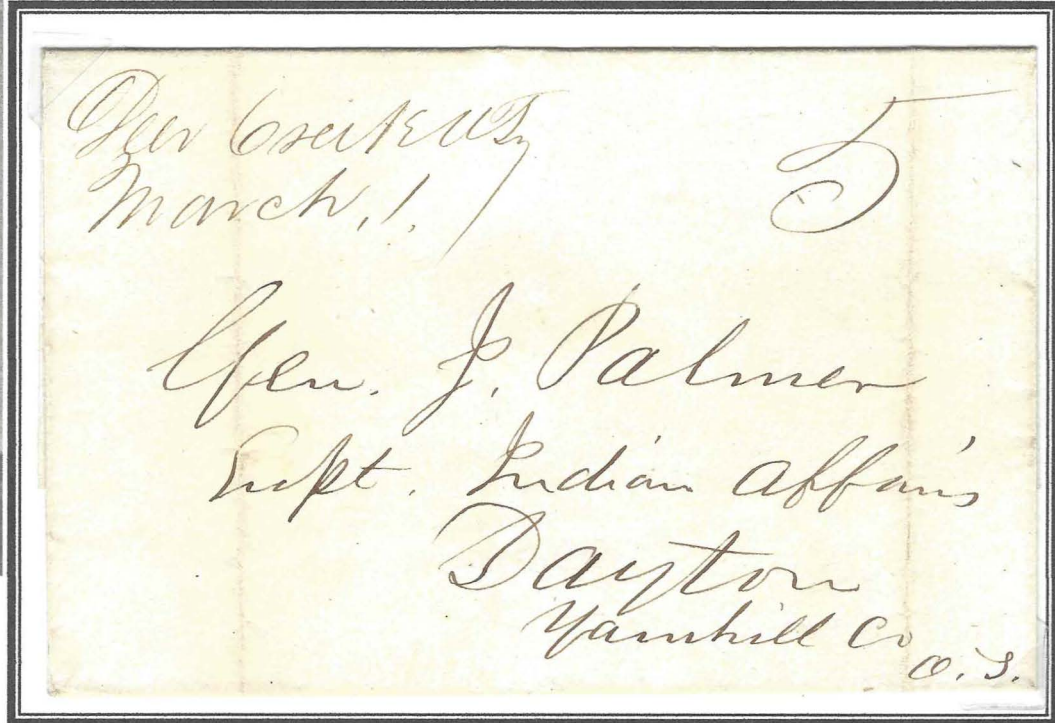 Deer Creek O Ty
March, 1.
5
Gen. J. Palmer
Supt. Indian Affairs
Dayton
Yamhill Co
O. T.